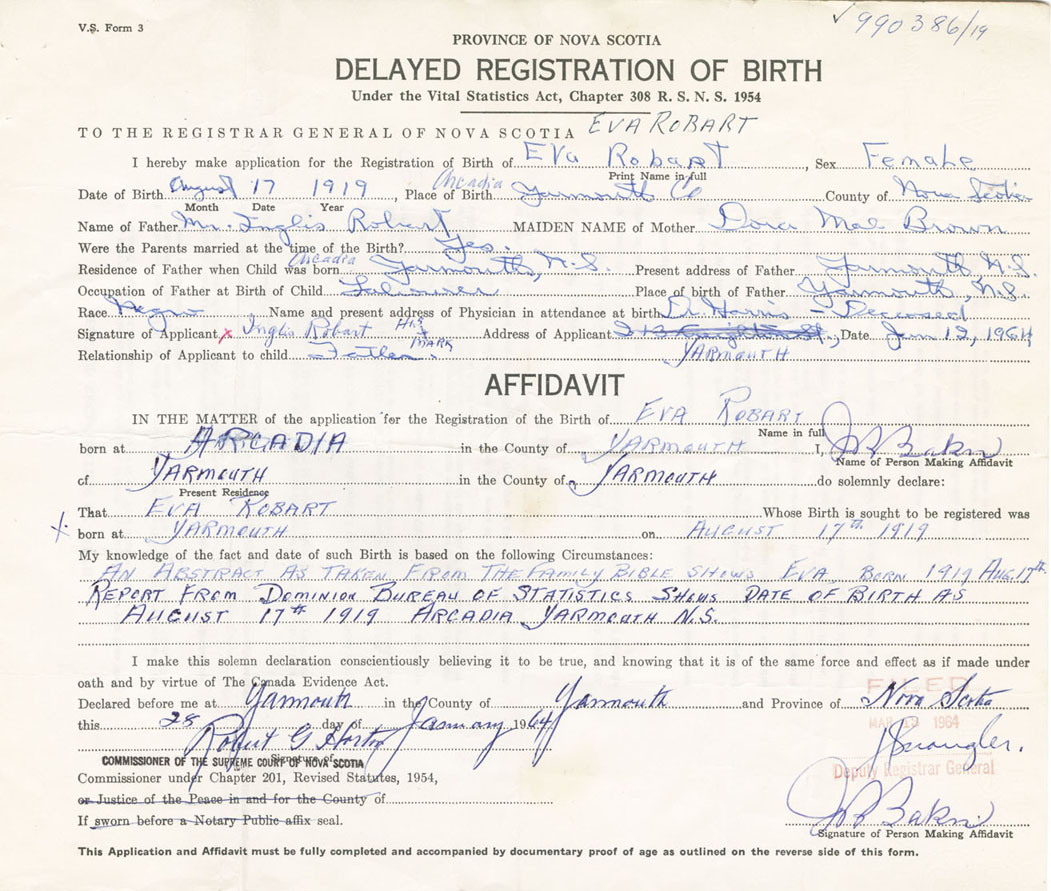 V.S. Form 3
✓990386/19
PROVINCE OF NOVA SCOTIA
DELAYED REGISTRATION OF BIRTH
Under the Vital Statistics Act, Chapter 308 R. S. N. S. 1954
TO THE REGISTRAR GENERAL OF NOVA SCOTIA EVA ROBART
I hereby make application for the Registration of Birth of Eva Robart, Sex Female
Print Name in full
Arcadia
Date of Birth August 17 1919, Place of Birth Yarmouth Co County of Nova Scotia
Month Date Year
Name of Father Mr. Inglis Robart MAIDEN NAME of Mother Dora Mae Brown
Were the Parents married at the time of the Birth? Yes.
Arcadia
Residence of Father when Child was born Yarmouth, N.S. Present address of Father Yarmouth N.S.
Occupation of Father at Birth of Child Labourer Place of birth of Father Yarmouth, N.S.
Race Negro Name and present address of Physician in attendance at birth Dr Harris - Deceased
Signature of Applicant x Inglis Robart His x Mark Address of Applicant, Date Jan 12, 1964
Relationship of Applicant to child Father. YARMOUTH
AFFIDAVIT
IN THE MATTER of the application for the Registration of the Birth of EVA ROBART
Name in full
born at ARCADIA in the County of YARMOUTH I, Baker
Name of Person Making Affidavit
of YARMOUTH in the County of YARMOUTH do solemnly declare:
Present Residence
That EVA ROBART Whose Birth is sought to be registered was
x born at YARMOUTH on AUGUST 17th 1919
My knowledge of the fact and date of such Birth is based on the following Circumstances:
AN ABSTRACT AS TAKEN FROM THE FAMILY BIBLE SHOWS EVA BORN 1919 AUG. 17th.
REPORT FROM DOMINION BUREAU OF STATISTICS SHOWS DATE OF BIRTH AS
AUGUST 17th 1919 ARCADIA YARMOUTH N.S.
I make this solemn declaration conscientiously believing it to be true, and knowing that it is of the same force and effect as if made under
oath and by virtue of The Canada Evidence Act.
FILED
Declared before me at Yarmouth in the County of Yarmouth and Province of Nova Scotia
MAR 1964
this 28 day of January 1964
Robert G Horton
Signature of
COMMISSIONER OF THE SUPREME COURT OF NOVA SCOTIA
Commissioner under Chapter 201, Revised Statutes, 1954,
Deputy Registrar General
or Justice of the Peace in and for the County of
If sworn before a Notary Public affix seal.
Baker
Signature of Person Making Affidavit
This Application and Affidavit must be fully completed and accompanied by documentary proof of age as outlined on the reverse side of this form.